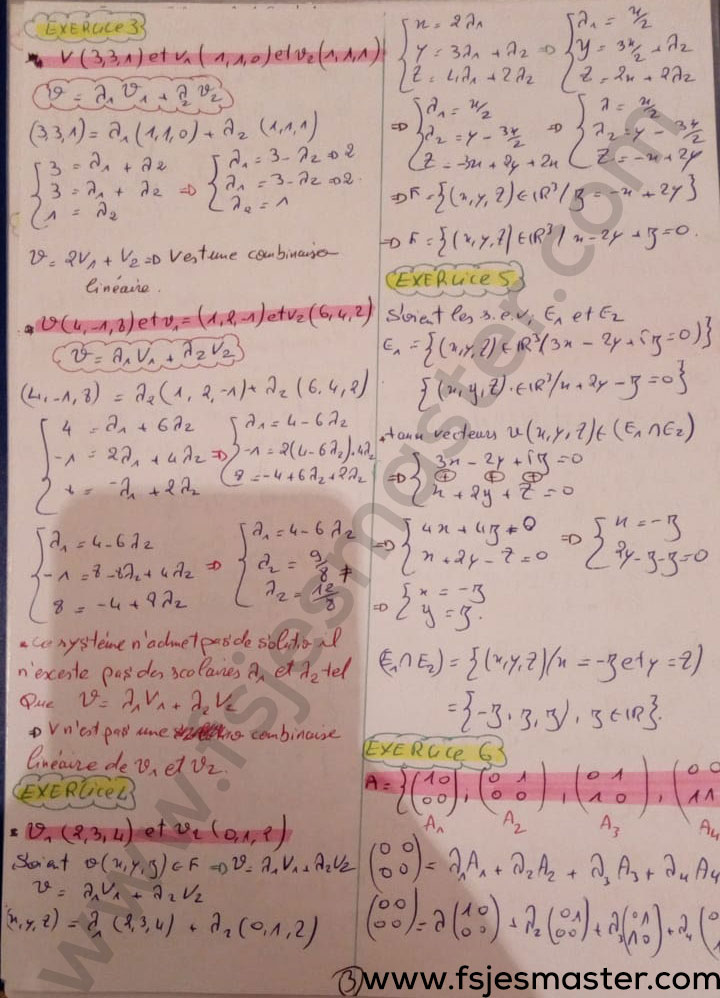 EXERCICE 3
V(3,3,1) et v₁(1,1,0) et v₂(1,1,1)
v = λ₁V₁ + λ₂V₂
(3,3,1) = λ₁(1,1,0) + λ₂(1,1,1)
{ 3 = λ₁ + λ₂ ⇒ { λ₁ = 3-λ₂ ⇒ 2
3 = λ₁ + λ₂ λ₁ = 3-λ₂ ⇒ 2
1 = λ₂ λ₂ = 1
v = 2V₁ + V₂ ⇒ V est une combinaison
linéaire.
v(4,-1,8) et v₁=(1,2,-1) et v₂(6,4,2)
v = λ₁V₁ + λ₂V₂
(4,-1,8) = λ₂(1,2,-1) + λ₂(6.4,2)
{ 4 = λ₁ + 6λ₂ ⇒ { λ₁ = 4-6λ₂
-1 = 2λ₁ + 4λ₂ -1 = 2(4-6λ₂)+4λ₂
= -λ₁ + 2λ₂ 8 = -4+6λ₂+2λ₂
{ λ₁ = 4-6λ₂ ⇒ { λ₁ = 4-6λ₂
-1 = 8-8λ₂+4λ₂ λ₂ = 9/8 ≠
8 = -4+8λ₂ λ₂ = 12/8
Ce système n'admet pas de solution il
n'existe pas des scolaires λ₁ et λ₂ tel
Que v = λ₁V₁ + λ₂V₂
⇒ V n'est pas une combinaise
linéaire de v₁ et v₂.
EXERCICE 4
v₁(2,3,4) et v₂(0,1,2)
Soient v(x,y,z) ∈ F ⇒ v = λ₁V₁+λ₂V₂
v = λ₁V₁ + λ₂V₂
(x,y,z) = λ₁(2,3,4) + λ₂(0,1,2)
{ x = 2λ₁ ⇒ { λ₁ = x/2
y = 3λ₁ + λ₂ y = 3x/2 + λ₂
z = 4λ₁ + 2λ₂ z = 2x + 2λ₂
⇒ { λ₁ = x/2 ⇒ { λ = x/2
λ₂ = y - 3x/2 λ₂ = y - 3x/2
z = -3x + 2y + 2x z = -x + 2y
⇒ F = {(x,y,z) ∈ ℝ³ / z = -x + 2y}
⇒ F = {(x,y,z) ∈ ℝ³ / x - 2y + z = 0
EXERCICE 5
Soient les s.e.v, E₁ et E₂
E₁ = {(x,y,z) ∈ ℝ³ (3x - 2y + 5z = 0)}
{(x,y,z) ∈ ℝ³ / x + 2y - z = 0}
vecteurs u(x,y,z) ∈ (E₁ ∩ E₂)
⇒ { 3x - 2y + 5z = 0
x + 2y + z = 0
⇒ { 4x + 4z = 0 ⇒ { x = -z
x + 2y - z = 0 2y - z - z = 0
⇒ { x = -z
y = z.
(E₁ ∩ E₂) = {(x,y,z) / x = -z et y = z)
= {-z, z, z), z ∈ ℝ}.
EXERCICE 6
A = {(1 0 / 0 0), (0 1 / 0 0), (0 1 / 1 0), (0 0 / 1 1
A₁ A₂ A₃ A₄
(0 0 / 0 0) = λ₁A₁ + λ₂A₂ + λ₃A₃ + λ₄A₄
(0 0 / 0 0) = λ(1 0 / 0 0) + λ₂(0 1 / 0 0) + λ₃(0 1 / 1 0) + λ₄(
3
www.fsjesmaster.com
www.fsjesmaster.com